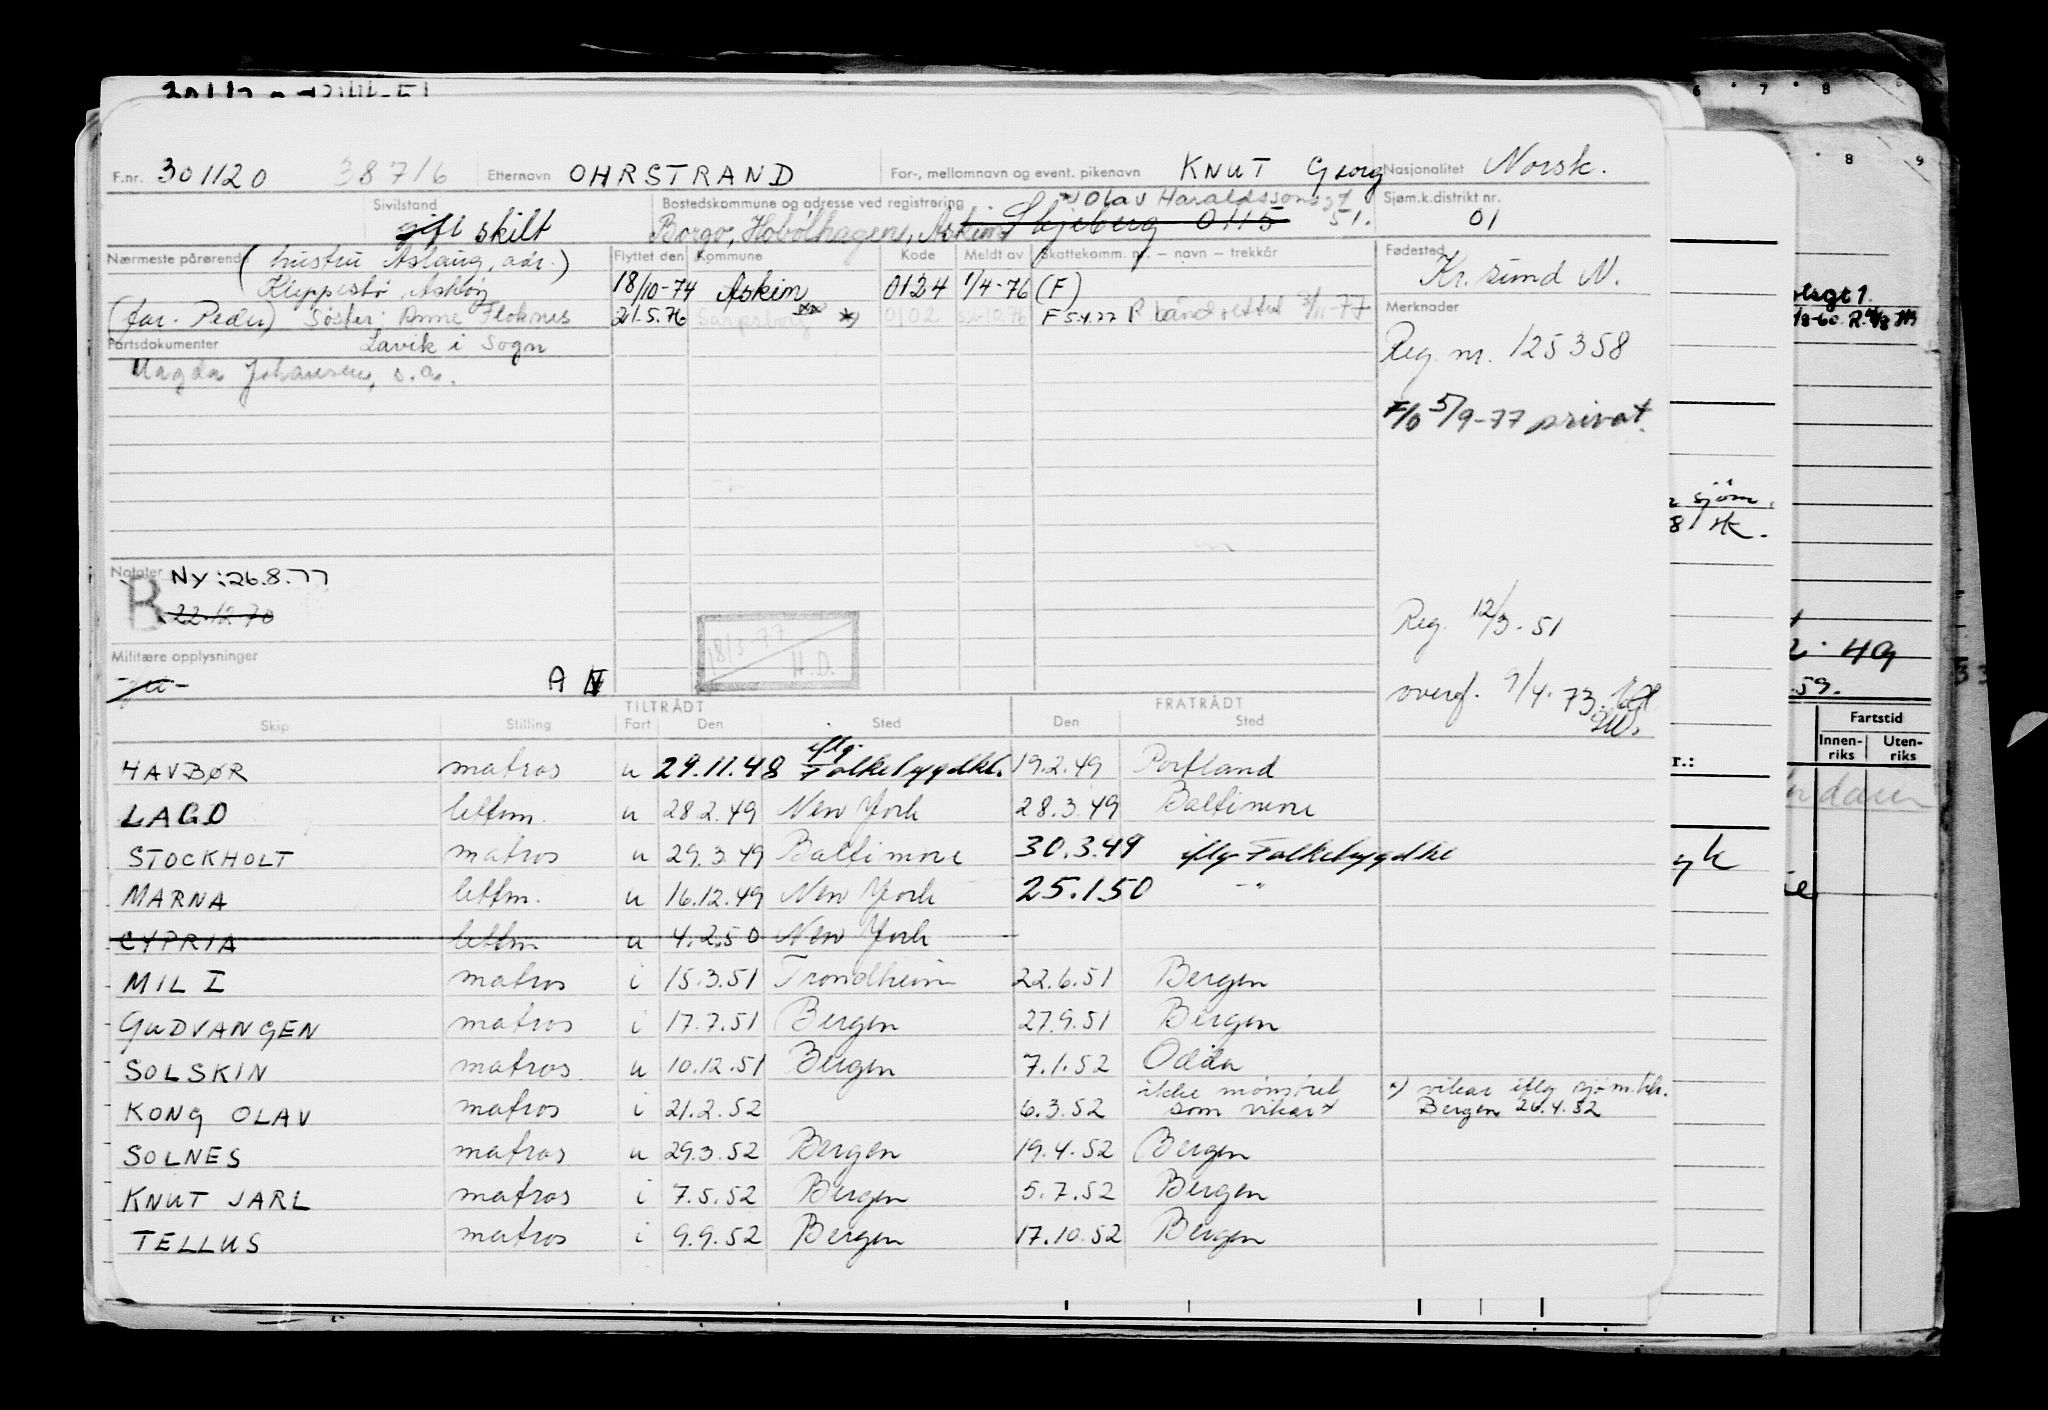 F.nr. 301120 38716 Etternavn OHRSTRAND For-, mellomnavn og event. pikenavn KNUT Georg Nasjonalitet Norsk.
Sivilstand gift skilt
Bostedskommune og adresse ved registrering Olav Haraldssonsgt 51.
Borgo, Hobølhagens, Askim Skjeberg 0115
Sjøm.k.distrikt nr. 01
Nærmeste pårørende (hustru Aslaug, adr.)
Kleppestø, Askøy
(far. Peder) Søster: Anne Floknes
Lavik i Sogn
Partsdokumenter
Magda Johansen, s.a.
Flyttet den Kommune Kode Meldt av Skattekomm. nr. – navn – trekkår
18/10-74 Askim 0124 1/4-76 (F)
21.5.76 Sarpsborg xx *) 0102 F 5.4.77
Fødested
Kr. sund N.
Merknader
Reg. nr. 125358
F/O 5/9-77 privat.
Reg. 12/3-51
overf. 9/4.73.
Notater
B Ny: 26.8.77
22.12.70
Militære opplysninger
-ja-
18/5-77
H.D.
TILTRÅDT FRATRÅDT
Skip Stilling Fart Den Sted Den Sted
HAVBØR matros u 29.11.48 iflg. Folkebygdkl. 19.2.49 Portland
LAGO lettm. u 28.2.49 New York 28.3.49 Baltimore
STOCKHOLT matros u 29.3.49 Baltimore 30.3.49 iflg Folkebygdkl
MARNA lettm. u 16.12.49 New York 25.1.50 -"-
CYPRIA lettm u 4.2.50 New York
MIL I matros i 15.3.51 Trondheim 22.6.51 Bergen
GUDVANGEN matros i 17.7.51 Bergen 27.9.51 Bergen
SOLSKIN matros u 10.12.51 Bergen 7.1.52 Odda
KONG OLAV matros i 21.2.52 6.3.52 ikke mønstret som vikar x
x) vikar iflg sjøm.ktr.
Bergen 26.4.52
SOLNES matros u 29.3.52 Bergen 19.4.52 Bergen
KNUT JARL matros i 7.5.52 Bergen 5.7.52 Bergen
TELLUS matros i 9.9.52 Bergen 17.10.52 Bergen
6 7 8
8 9
sjøm.
49
.59.
Fartstid
Innen-riks Uten-riks
r.: